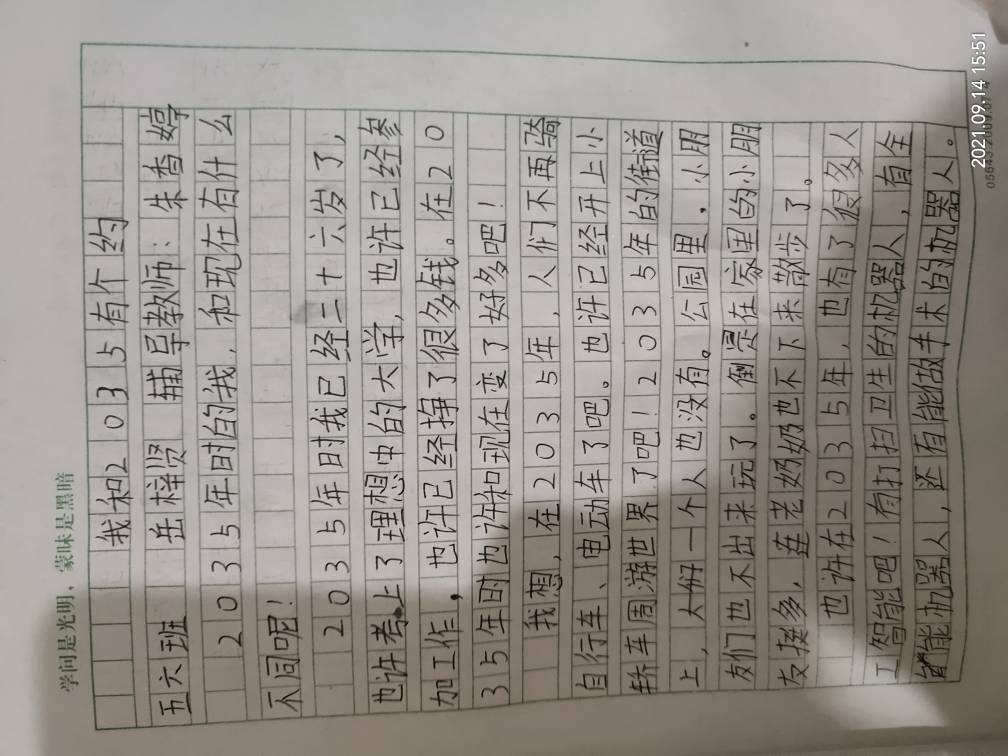 学问是光明，蒙昧是黑暗
我和2035有个约
五六班 岳梓贤 辅导教师：朱香婷
2035年时的我，和现在有什么
不同呢！
2035年时我已经二十六岁了，
也许考上了理想中的大学，也许已经参
加工作，也许已经挣了很多钱。在20
35年时也许和现在变了好多吧！
我想，在2035年，人们不再骑
自行车、电动车了吧。也许已经开上小
轿车周游世界了吧！2035年的街道
上，大街一个人也没有。公园里，小朋
友们也不出来玩了。倒是在家里的小朋
友挺多，连老奶奶也不下来散步了。
也许在2035年，也有了很多人
工智能吧！有打扫卫生的机器人，有全
能机器人，还有能做手术的机器人。
2021.09.14 15:51